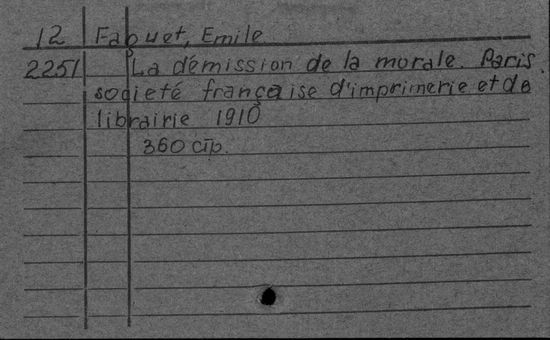 12 Faguet, Emile
2251 La démission de la morale. Paris.
societé française d'imprimerie et de
librairie 1910
360 стр.